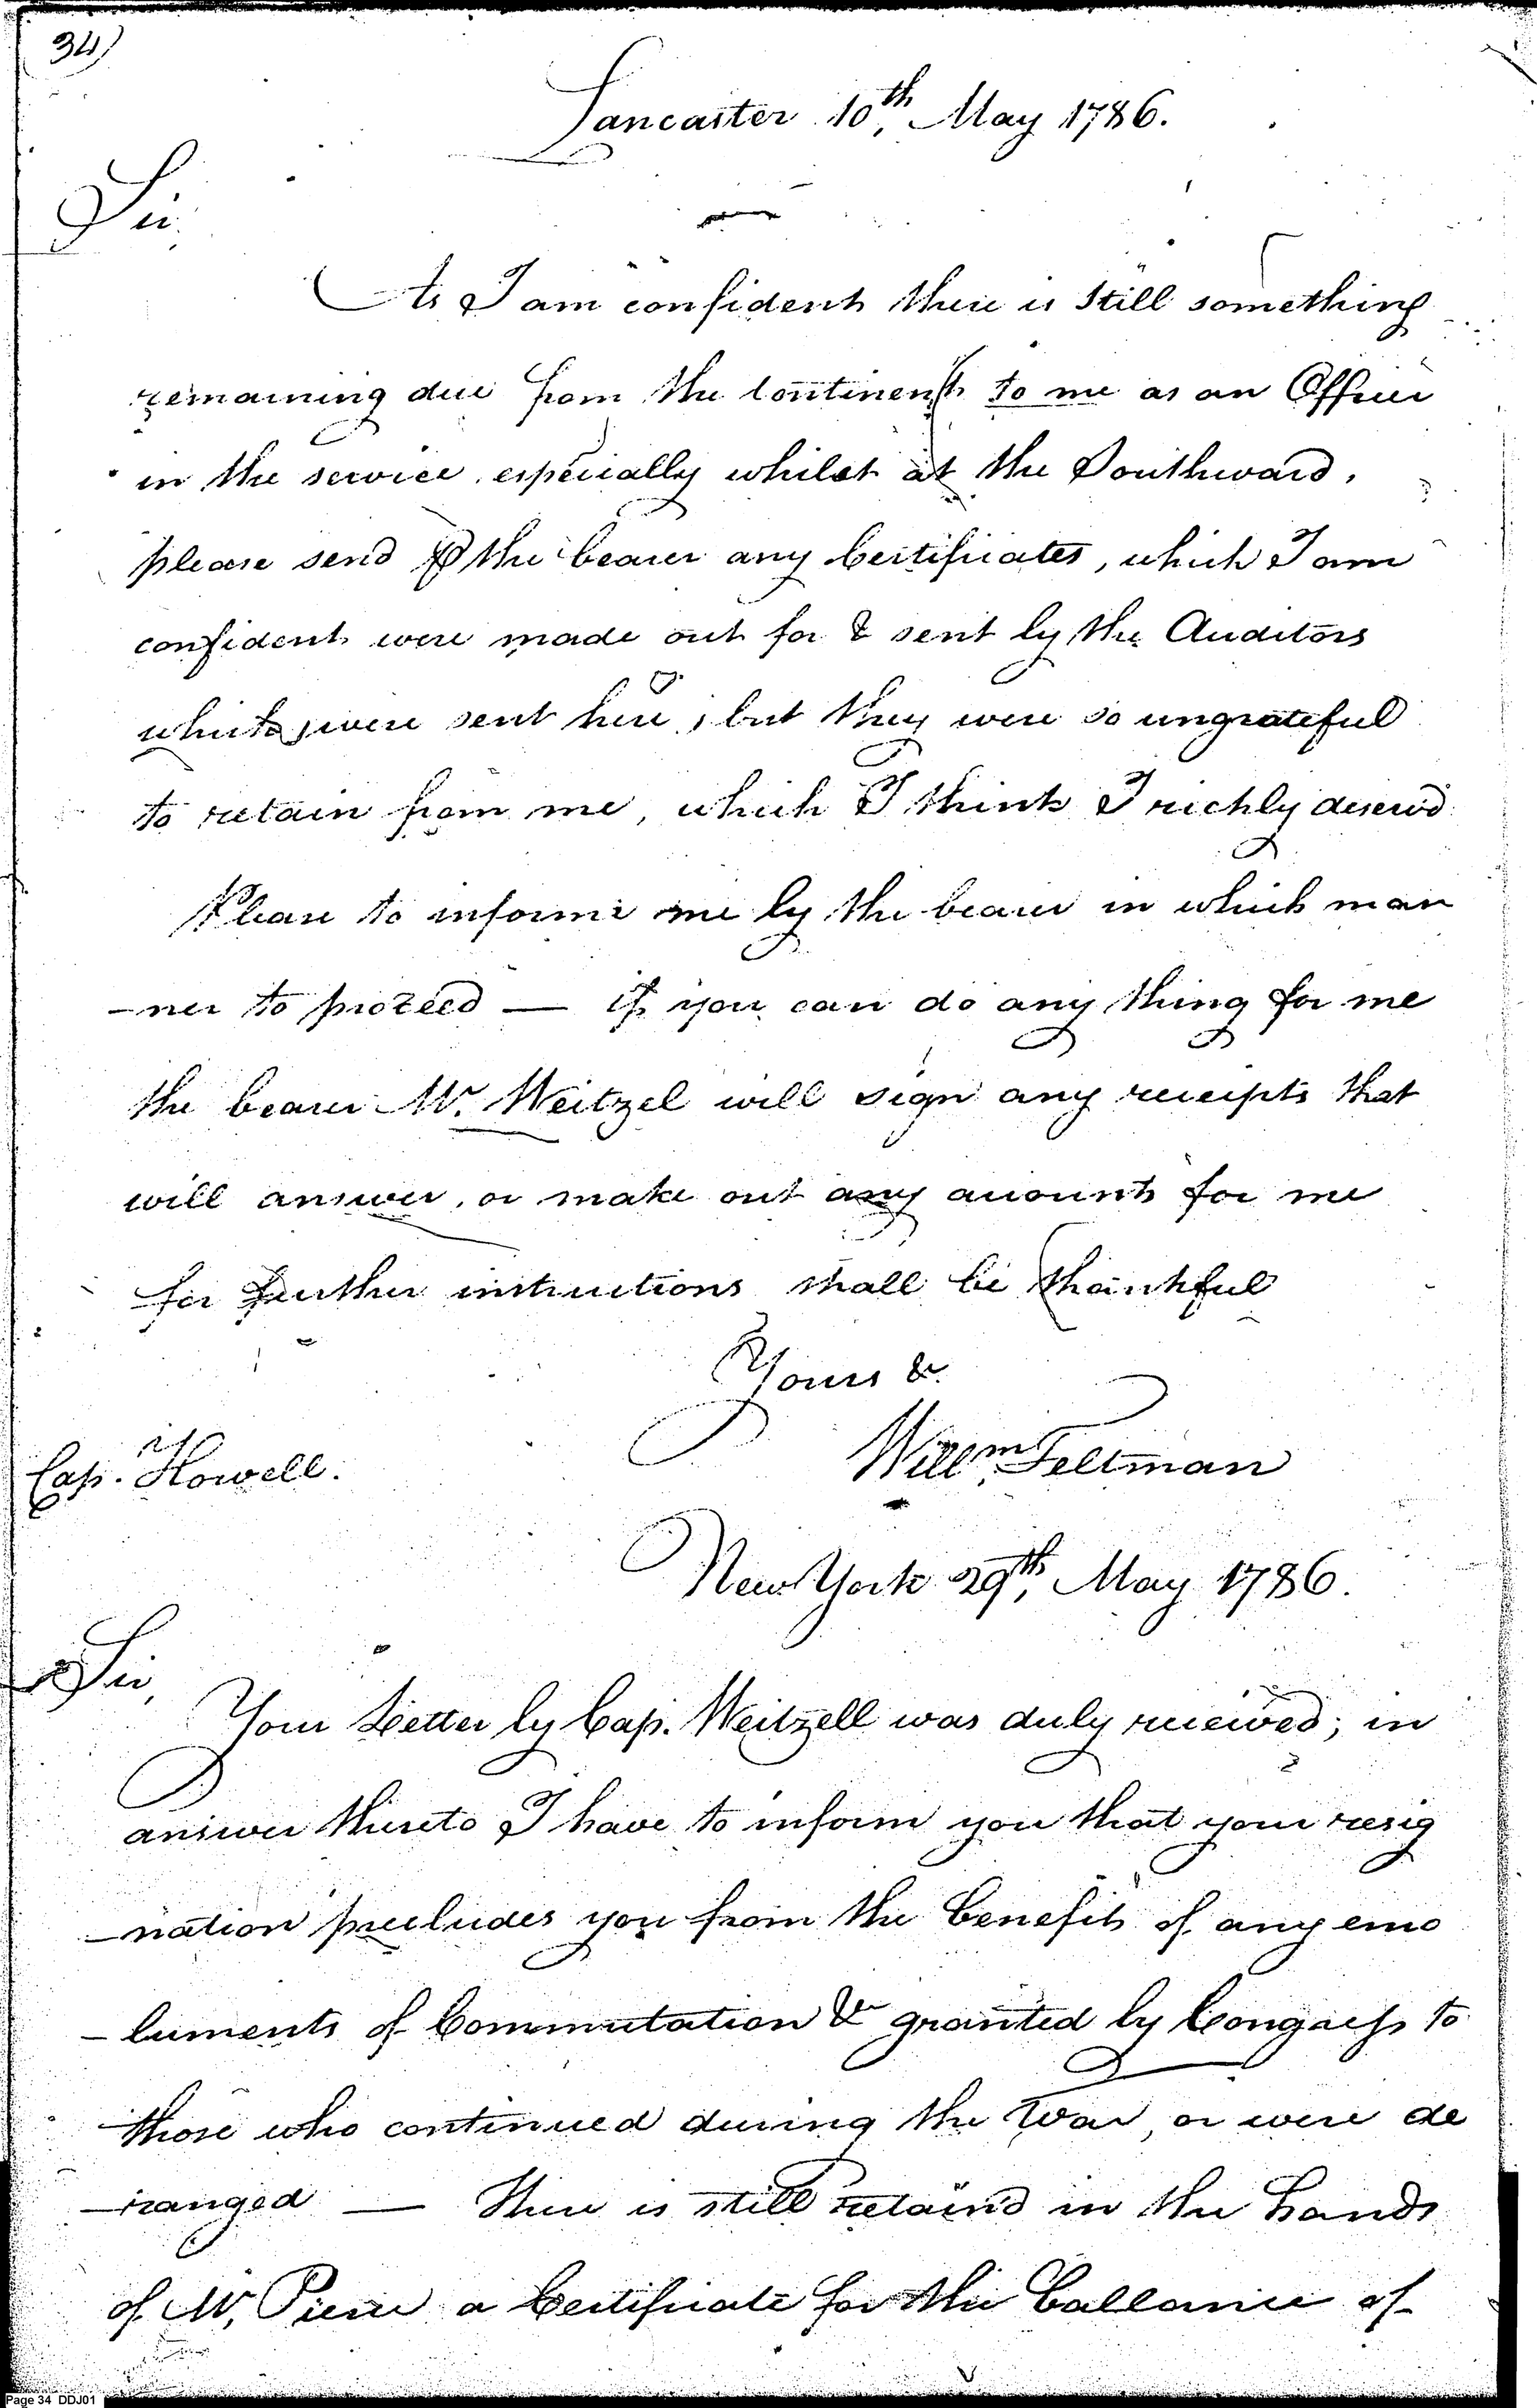 34)
Lancaster 10th, May 1786.
Sir,
As I am confident there is Still something
remaining due from the Continent to me as an Officer
in the service, especially whilst at the Southward,
please send ⅌ the bearer any Certificates, which I am
confident were made out for & sent by the Auditors
which were sent here, but they were so ungrateful
to retain from me, which I think I richly deserv'd
Please to inform me by the bearer in which man
-ner to proceed — if you can do any thing for me
the bearer Mr. Weitzel will sign any receipts that
will answer, or make out any accounts for me
for further instructions shall be thankful
Yours &c.
Willm. Feltman
Cap. Howell.
New York 29th, May 1786.
Sir,
Your Letter by Cap. Weitzell was duly received; in
answer thereto I have to inform you that your resig
-nation precludes you from the benefits of any emo
-luments of Commutation &c granted by Congress to
those who continued during the War, or were de
-ranged — There is still retain'd in the hands
of Mr, Pierce a Certificate for the ballance of
Page 34 DDJ01